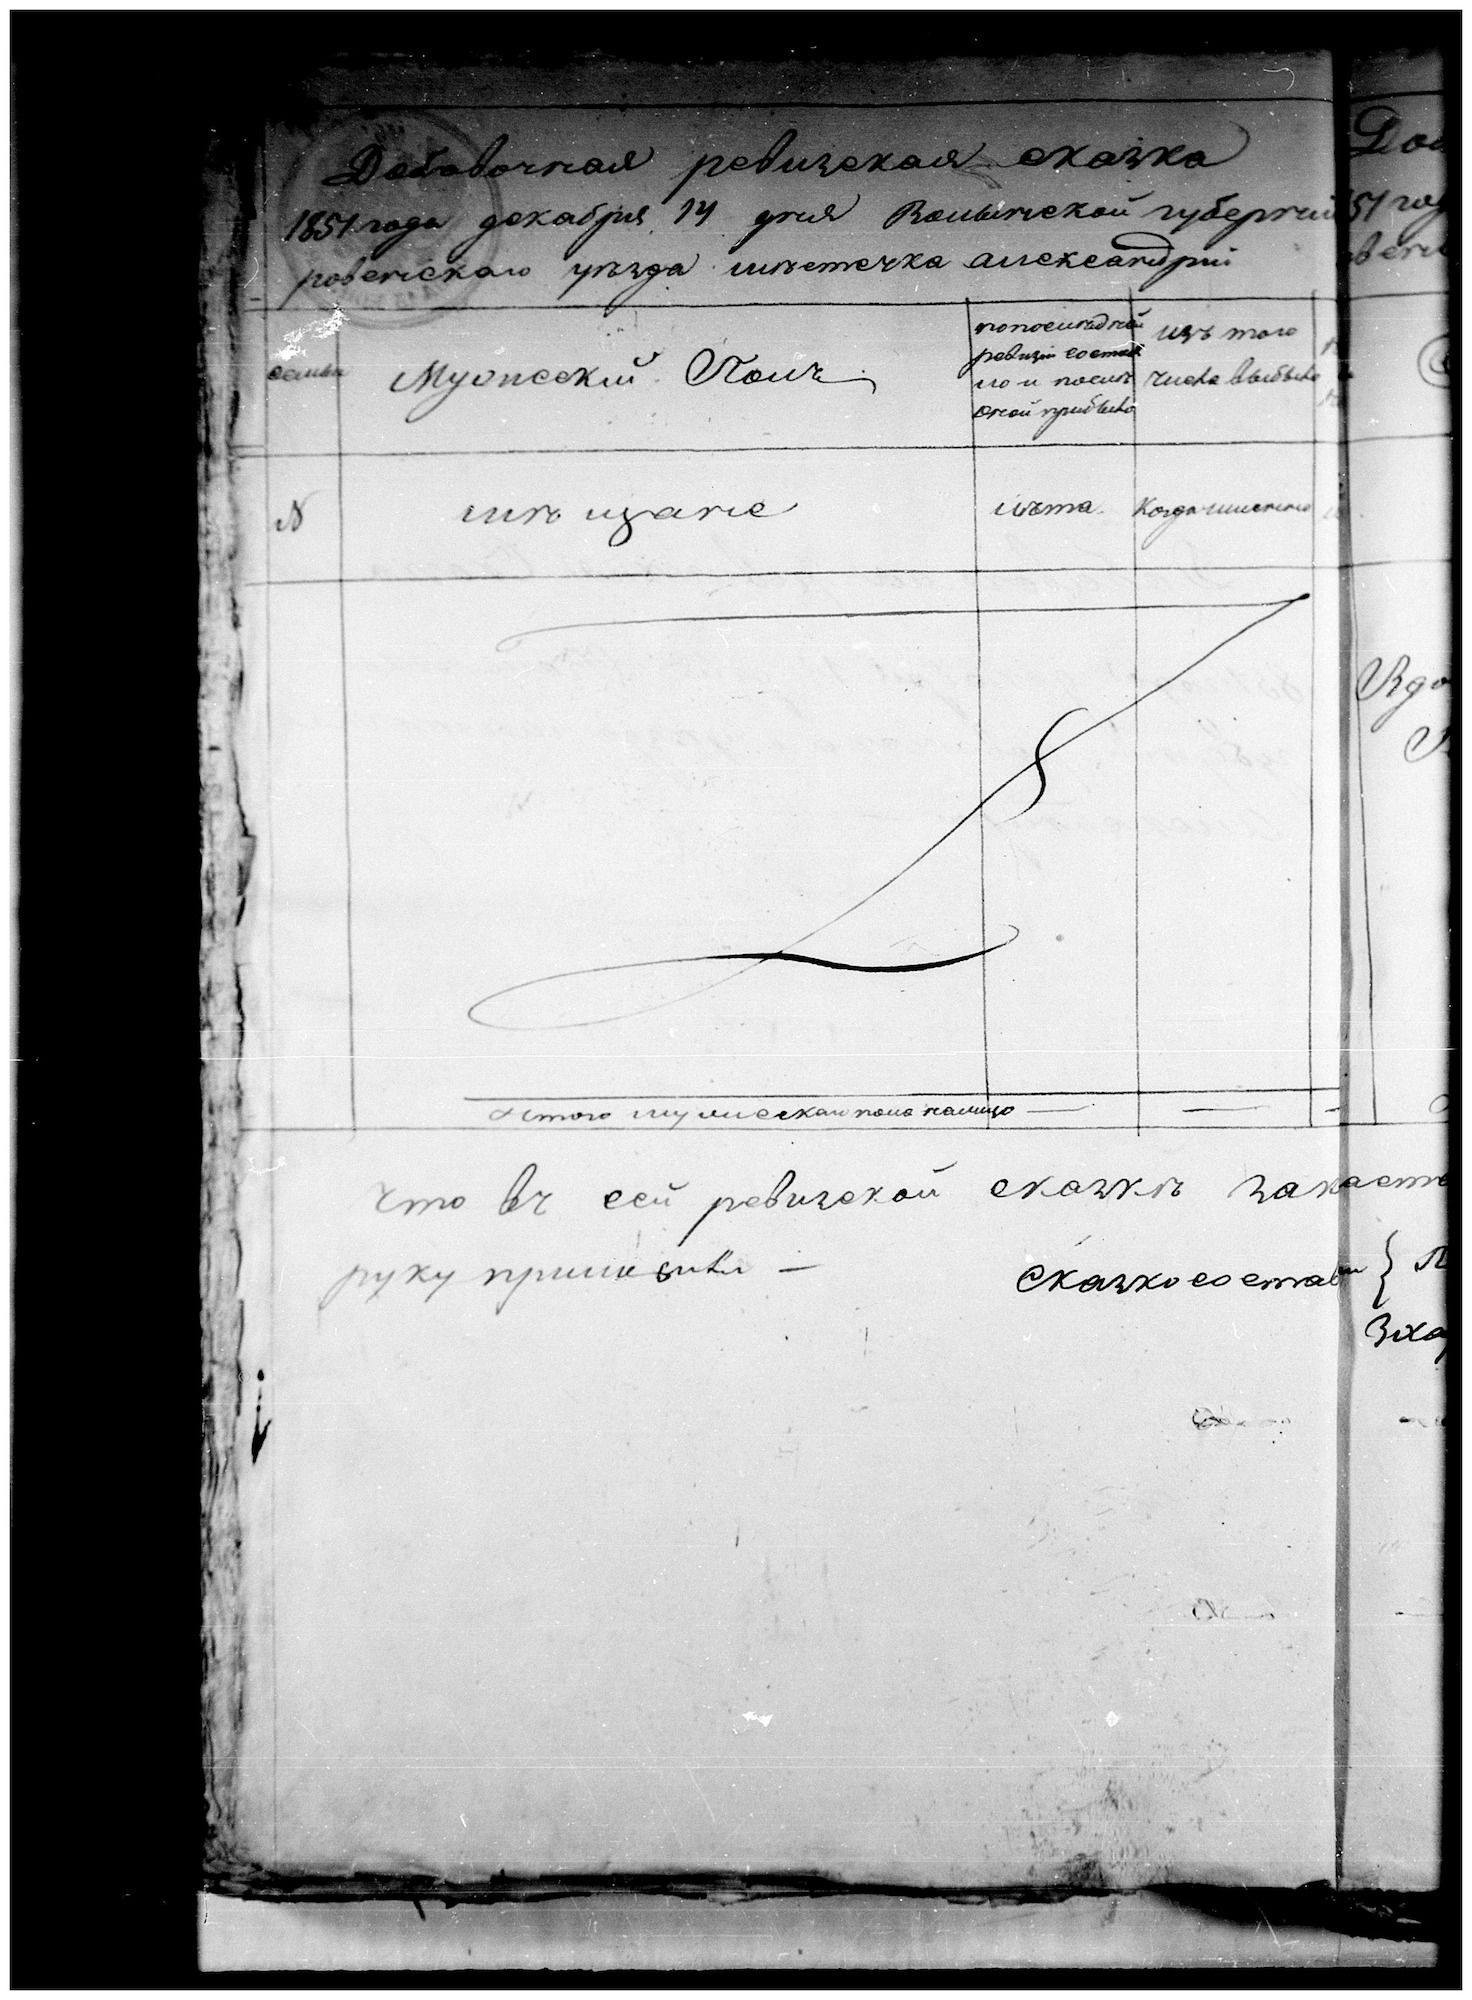 Добавочная ревизская сказка
1851 года декабря 14 дня Волынской губернии
ровенскаго уѣзда мѣстечка Александріи
семьи
Мужеский Полъ
по последней
ревизіи состоя
ло и послѣ
оной прибыло
изъ того
числа выбыло
N
мѣщане
лѣта
когда именно
Итого мужескаго пола налицо — —
что въ сей ревизской сказкѣ
руку приложили —
Сказку состав